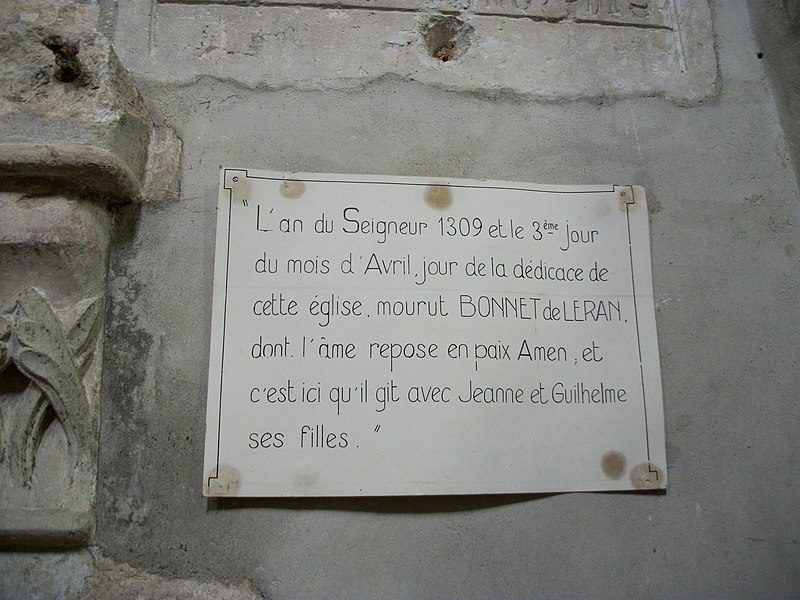 "L'an du Seigneur 1309 et le 3ème jour
du mois d'Avril, jour de la dédicace de
cette église, mourut BONNET de LERAN,
dont l'âme repose en paix Amen, et
c'est ici qu'il git avec Jeanne et Guilhelme
ses filles."